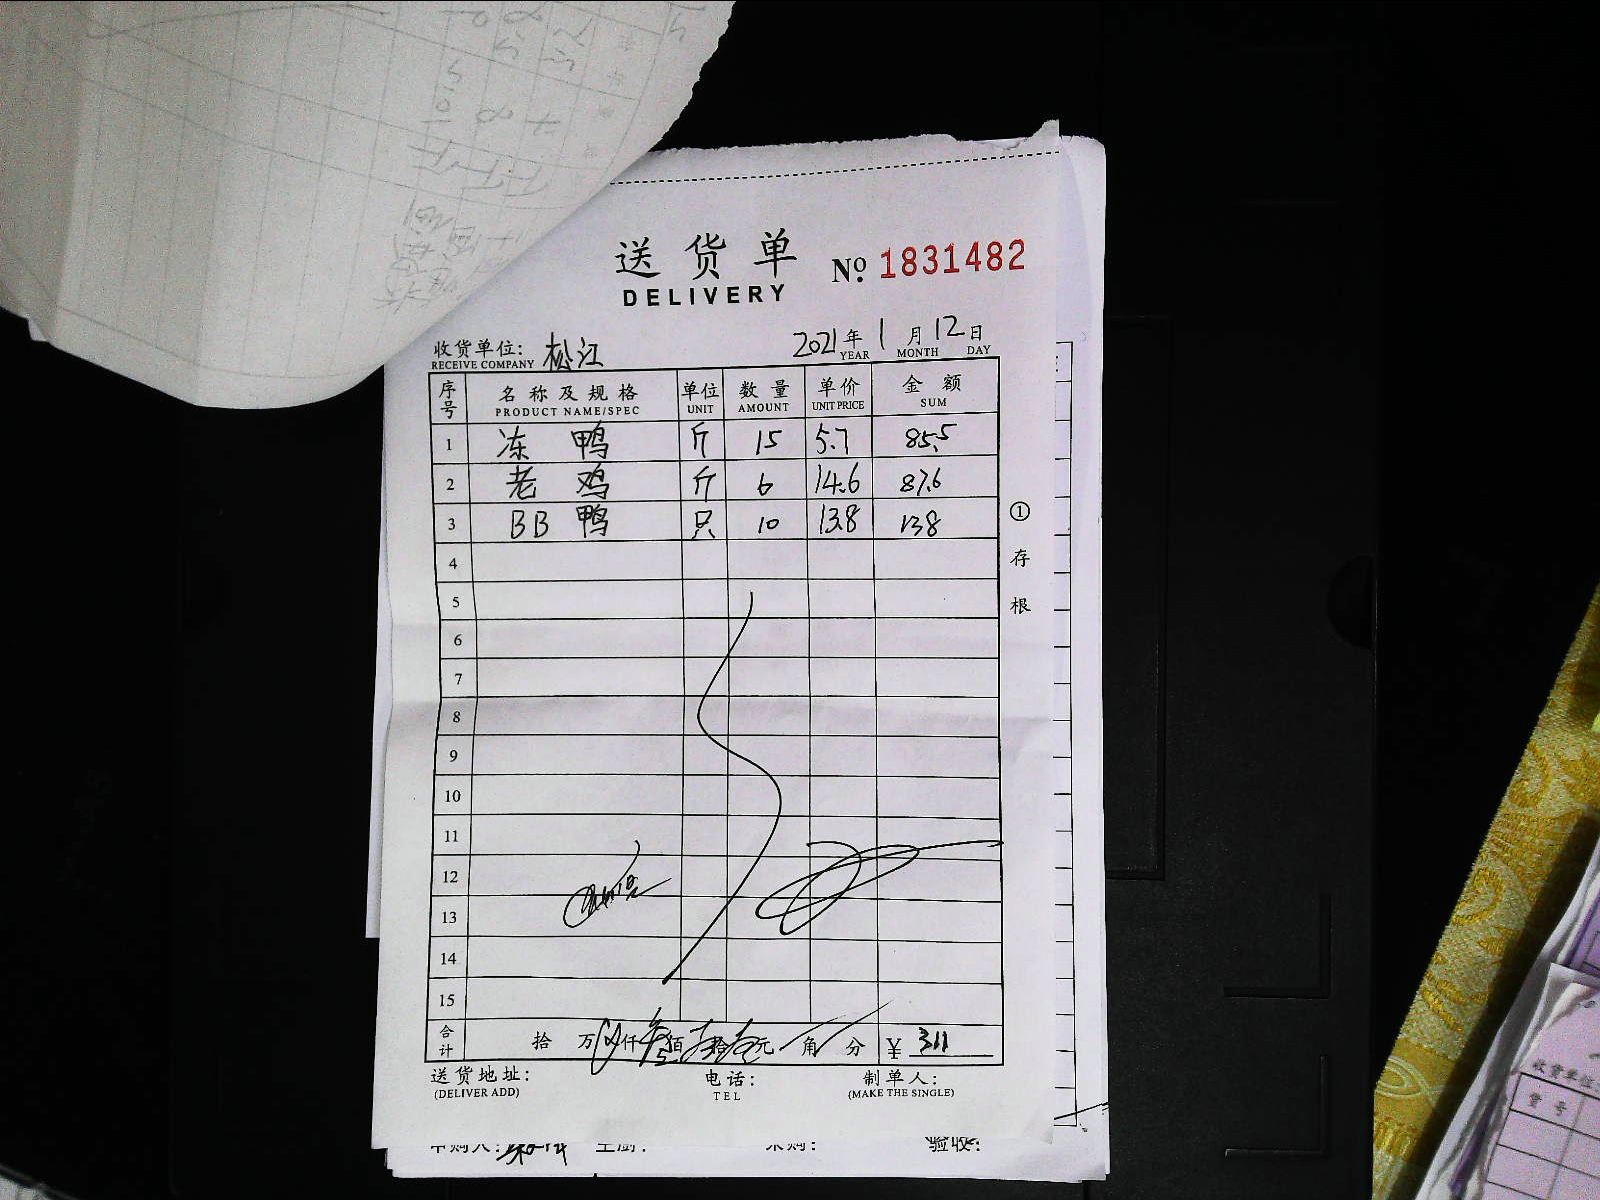 送货单
DELIVERY
№ 1831482
收货单位: 松江
RECEIVE COMPANY
2021年1月12日
YEAR MONTH DAY
序号 名称及规格 单位 数量 单价 金额
PRODUCT NAME/SPEC UNIT AMOUNT UNIT PRICE SUM
1 冻鸭 斤 15 5.7 85.5
2 老鸡 斤 6 14.6 87.6
3 BB鸭 只 10 13.8 138
4
5
6
7
8
9
10
11
12
13
14
15
①存根
合计 拾 万 仟 佰 拾 元 角 分 ¥ 311
送货地址: 电话: 制单人:
(DELIVER ADD) TEL (MAKE THE SINGLE)
验收:
收货单位
货号